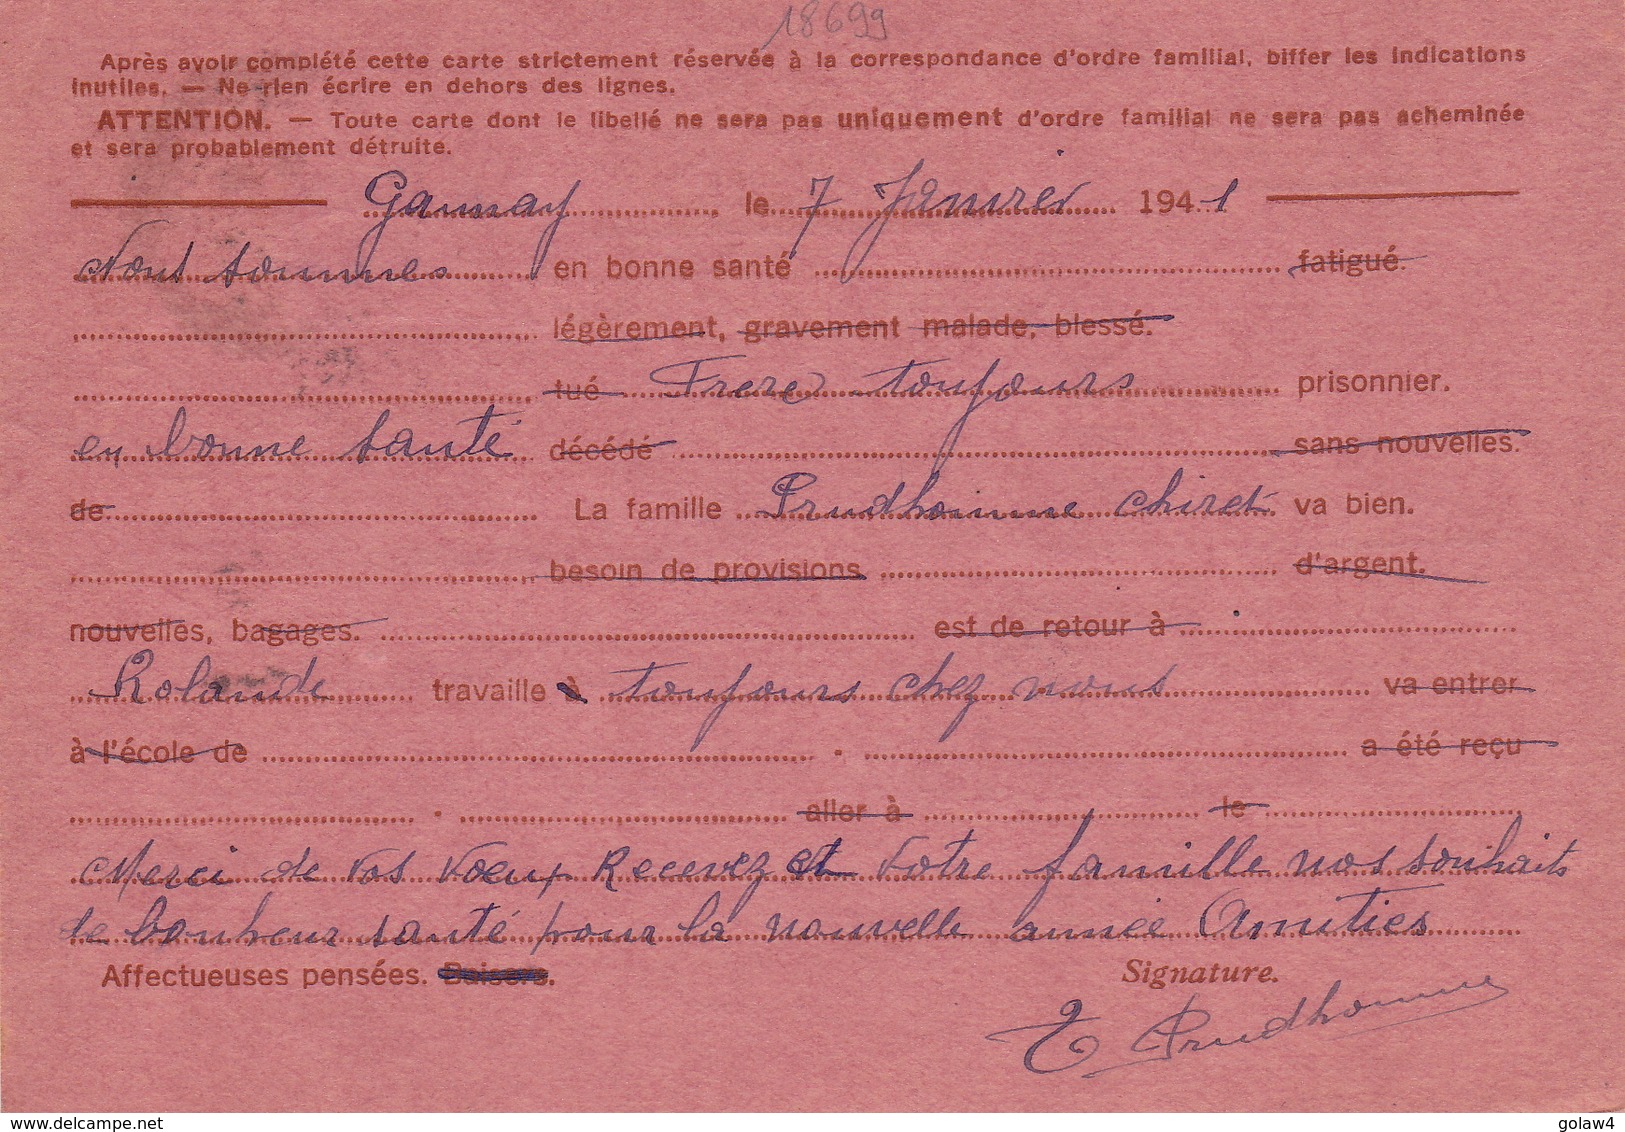 18699
Après avoir complété cette carte strictement réservée à la correspondance d'ordre familial, biffer les indications
inutiles. — Ne rien écrire en dehors des lignes.
ATTENTION. — Toute carte dont le libellé ne sera pas uniquement d'ordre familial ne sera pas acheminée
et sera probablement détruite.
Gannay le 7 Janvier 1941
Nous sommes en bonne santé fatigué.
légèrement, gravement malade, blessé.
tué Frere toujours prisonnier.
en bonne santé décédé sans nouvelles.
de La famille Prudhomme Chiret va bien.
besoin de provisions d'argent.
nouvelles, bagages. est de retour à
Rolande travaille à toujours chez nous va entrer
à l'école de . a été reçu
. aller à le
Merci de vos voeux Recevez et votre famille nos souhaits
de bonheur santé pour la nouvelle année Amitiés
Affectueuses pensées. Baisers. Signature.
E Prudhomme
www.delcampe.net golaw4